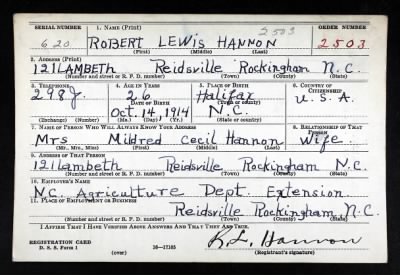 SERIAL NUMBER 1. NAME (Print) ORDER NUMBER
620 ROBERT LEWIS HANNON 2503 2503
(First) (Middle) (Last)
2. ADDRESS (Print)
121 LAMBETH Reidsville Rockingham N.C.
(Number and street or R. F. D. number) (Town) (County) (State)
3. TELEPHONE 4. AGE IN YEARS 5. PLACE OF BIRTH 6. COUNTRY OF CITIZENSHIP
298J. 26 Halifax U.S.A.
DATE OF BIRTH (Town or county)
Oct. 14. 1914 N.C.
(Exchange) (Number) (Mo.) (Day) (Yr.) (State or country)
7. NAME OF PERSON WHO WILL ALWAYS KNOW YOUR ADDRESS 8. RELATIONSHIP OF THAT PERSON
Mrs Mildred Cecil Hannon Wife
(Mr., Mrs., Miss) (First) (Middle) (Last)
9. ADDRESS OF THAT PERSON
121 Lambeth Reidsville Rockingham N.C.
(Number and street or R. F. D. number) (Town) (County) (State)
10. EMPLOYER'S NAME
N.C. Agriculture Dept. Extension
11. PLACE OF EMPLOYMENT OR BUSINESS
Reidsville Rockingham N.C.
(Number and street or R. F. D. number) (Town) (County) (State)
I AFFIRM THAT I HAVE VERIFIED ABOVE ANSWERS AND THAT THEY ARE TRUE.
REGISTRATION CARD R.L. Hannon
D. S. S. Form 1 (over) 16—17105 (Registrant's signature)